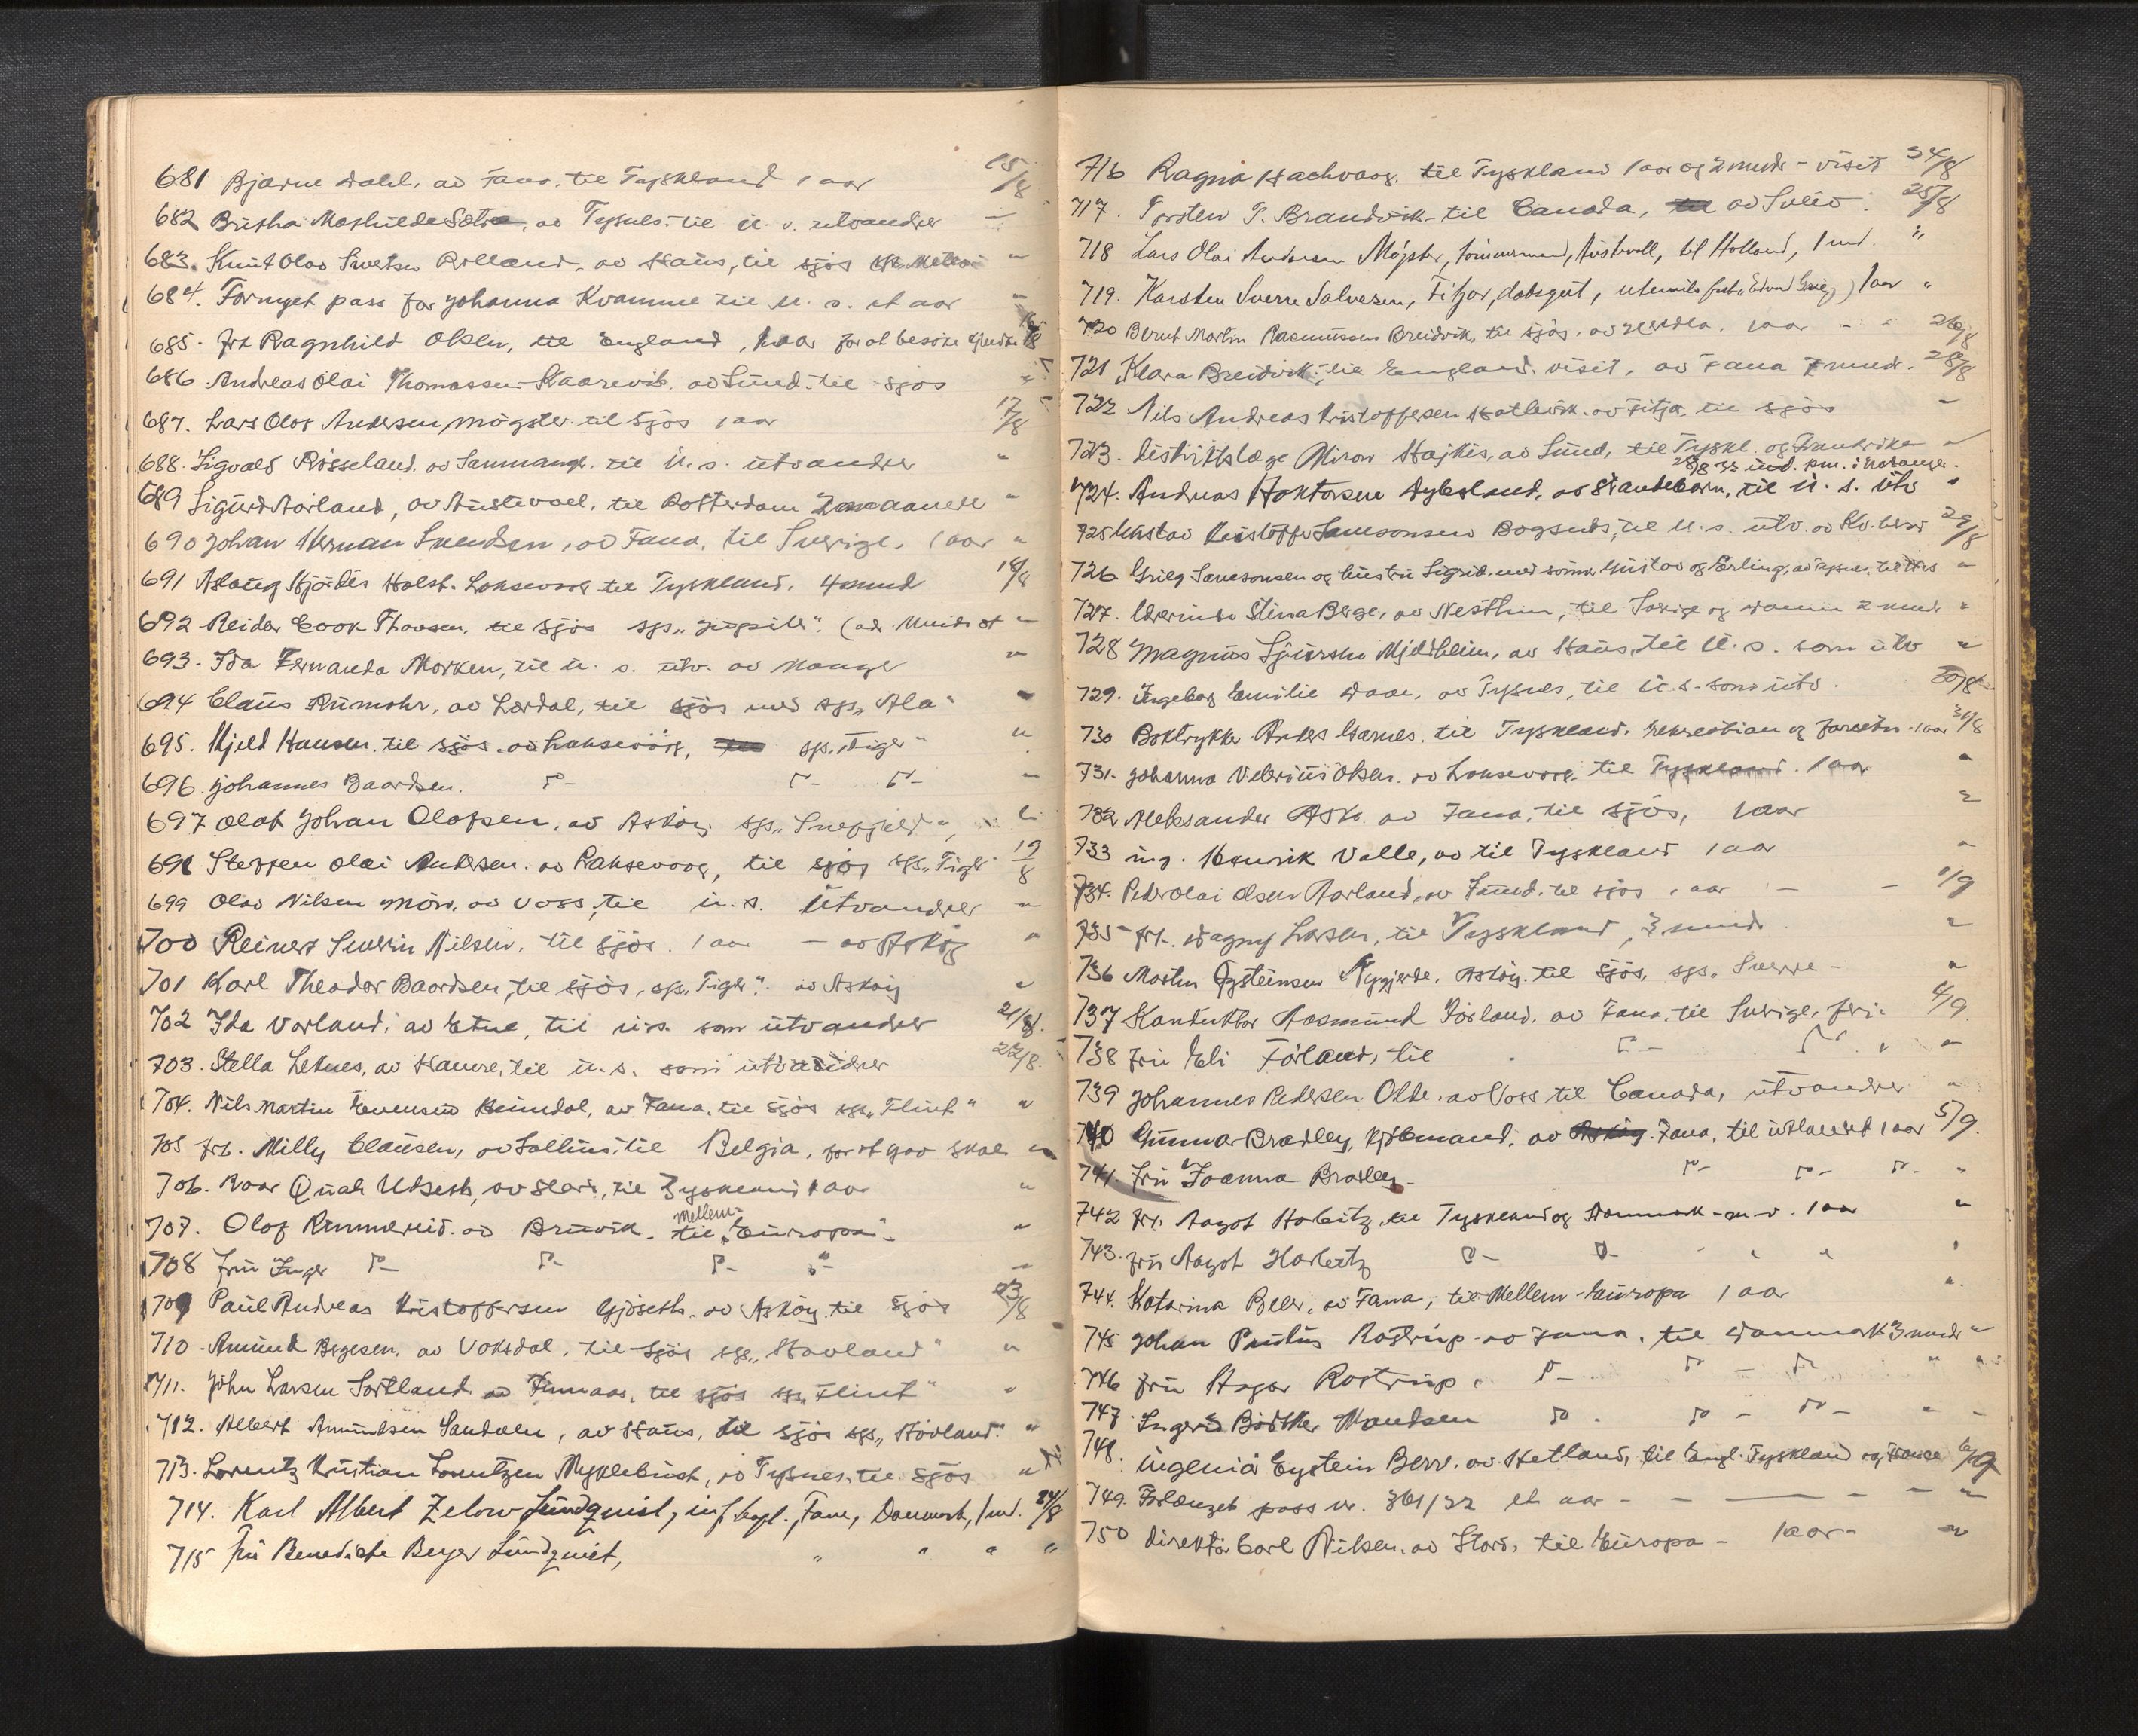 681 Bjarne Dahl, av Fana, til Tyskland 1 aar 15/8
682 Mathilde av Tysnes, til U. s. utvandrer
683. Knut Olav Rolland, av Haus, til sjøs "
684. Fornyet pass for Johanna Kvamme til U. s. et aar "
685. Frk Ragnhild Olsen, til England, 1 aar for at besøke
686. Andreas Olai Thomassen av Sund. til sjøs "
687. Lars Olav Andersen Møgster til Sjøs 1 aar 17/8
688. Sigvald Røsseland, av Samnanger, til U. s. utvandrer "
689 Sigurd Aarland, av Austevoll, til Rotterdam 2 maaneder "
690 Johan Herman Svendsen, av Fana, til Sverige. 1 aar "
691 Hjørdis Holst. Laksevaag til Tyskland. 4 mnd 18/8
692 Reidar Cook Thoosen, til Sjøs sps. "
693. Ida Fernanda Morken, til U. s. utv. av Mange "
694 Claus Rumohr, av Lærdal, til sjøs med sps „Ala" "
695. Kjeld Hansen, til sjøs av Laksevåg, sps. „Tiger" "
696. Johannes Baardsen. "
697 Olaf Johan Olafsen, av Askøy sps. „Snefjeld"
698 Steffen Olai Andersen, av Laksevaag, til sjøs sps. „Tiger" 19/8
699 Olav Nilsen av Voss, til U. s. Utvandrer "
700 Reinert Severin Nilsen, til sjøs. 1 aar - av Askøy "
701 Karl Theodor Baardsen, til sjøs, sps. „Tiger". av Askøy "
702 Ida Vorland, av Etne, til U.s. som utvandrer 21/8.
703. Stella Leknes, av Hamre, til U. s. som utvandrer 22/8.
704. Nils Martin Evensen Heimdal, av Fana, til sjøs sps. „Flint" "
705 frk. Milly Clausen, av til Belgia, for at gaa skole "
706. Roar Utseth, av til Tyskland 1 aar "
707. Olaf av Bruvik. til „Mellem-Europa". "
708 Fru Inger "
709 Paul Andreas Kristoffersen Gjøseth. av Askøy, til Sjøs 23/8
710. Amund Birgesen, av Voksdal, til sjøs sps. „Hovland" "
711. John Larsen Sortland av Finnaas, til sjøs sps. „Flint" "
712. Albert Amundsen Sandalen, av Haus, til sjøs sps. „Hovland". "
713. Lorentz Kristian Lorentzen Myklebust, av Tysnes, til Sjøs "
714. Karl Albert Zelow Lundquist, Fane, Danmark, 1 md. 24/8
715 fru Benedicte Beyer Lundquist, " " " "
716 Ragna til Tyskland 1 aar og 2 mndr - visit 24/8
717. Torsten T. Brandvik - til Canada, av Sveio. 25/8
718 Lars Olai Andersen Møgster, tømmermand, Austevoll, til Holland, 1 md. "
719. Karsten Sverre Salvesen, Fitjar, dæksgut, 1 aar "
720 Bernt Martin Rasmussen Breidvik, til sjøs. av Herdla. 1 aar 26/8
721 Klara Breidvik, til England. visit, av Fana mnd. 28/8
722 Nils Andreas Kristoffersen av Fitja. til sjøs
723. Distriktslæge Miron Hajkis, av Sund, til Tyskl. og Frankrike
28/8 33 ind.
724. Andreas av Strandebarm, til U. s. Utv "
725 Gustav Kristoffer Samsonsen Bogsnes, til U. s. utv. av Kv.herad 29/8
726. Grieg Samsonsen og hustru Sigrid. med sønner Gustav og Erling, av Tysnes, til "
727. lærerinde Stina Berge, av Nesttun, til Sverige og Danm 2 mnd "
728 Magnus Sjursen Mjeldheim, av Haus, til U. s. som utv "
729. Ingeborg Emilie Daae, av Tysnes, til U. s. som utv. 30/8
730 Boktrykker Anders Garnes, til Tyskland. og 1 aar 31/8
731. Johanna Olsen, av Laksevaag, til Tyskland. 1 aar "
732 Aleksander Ask av Fana, til sjøs, 1 aar "
733 ing. Henrik Valle, av til Tyskland 1 aar "
734. Peder Olai Olsen Aarland, av Sund. til sjøs 1 aar - - 1/9
735 frk. Dagny Larsen, til Tyskland, 3 mndr "
736 Mosten Øysteinsen Nygjerde, Askøy. til sjøs, sps. Sverre - "
737 Konduktør Aasmund Førland. av Fana. til Sverige, feri. 4/9.
738 fru Eli Førland, til "
739 Johannes Pedersen Olde, av Voss til Canada, utvandrer "
740 Gunnar Bradley, kjøbmand, av Fana, til utlandet 1 aar 5/9.
741. Fru Joanna Bradley - "
742 frk. Aagot Harbitz, til Tyskland og Danmark 1 aar "
743. fru Aagot Harbitz "
744. Katarina Beer, av Fana, til Mellem-Europa 1 aar "
745 Johan Paulus Rostrup av Fana. til Danmark 3 mndr "
746 fru Hagar Rostrup. "
747 Ingerid Bødtker Knudsen "
748. ingeniør Eystein Berv. av Hetland, til Engl. Tyskland og 6/9
749. Forlænget pass nr. 361/32 et aar - "
750 direktør Carl Nilsen, av Stord, til Europa - 1 aar - "